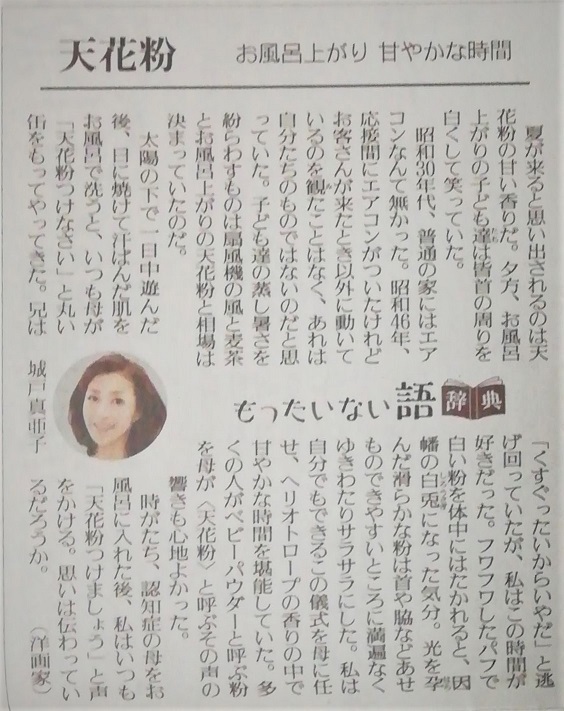 天花粉
お風呂上がり 甘やかな時間
夏が来ると思い出されるのは天
花粉の甘い香りだ。夕方、お風呂
上がりの子ども達は皆首の周りを
白くして笑っていた。
昭和30年代、普通の家にはエア
コンなんて無かった。昭和46年、
応接間にエアコンがついたけれど
お客さんが来たとき以外に動いて
いるのを観たことはなく、あれは
自分たちのものではないのだと思
っていた。子ども達の蒸し暑さを
紛らわすものは扇風機の風と麦茶
とお風呂上がりの天花粉と相場は
決まっていたのだ。
太陽の下で一日中遊んだ
後、日に焼けて汗ばんだ肌を
お風呂で洗うと、いつも母が
「天花粉つけなさい」と丸い
缶をもってやってきた。兄は
もったいない語辞典
城戸真亜子
「くすぐったいからいやだ」と逃
げ回っていたが、私はこの時間が
好きだった。フワフワしたパフで
白い粉を体中にはたかれると、因
幡の白兎になった気分。光を孕
んだ滑らかな粉は首や脇などあせ
ものできやすいところに満遍なく
ゆきわたりサラサラにした。私は
自分でもできるこの儀式を母に任
せ、ヘリオトロープの香りの中で
甘やかな時間を堪能していた。多
くの人がベビーパウダーと呼ぶ粉
を母が〈天花粉〉と呼ぶその声の
響きも心地よかった。
時がたち、認知症の母をお
風呂に入れた後、私はいつも
「天花粉つけましょう」と声
をかける。思いは伝わってい
るだろうか。　（洋画家）